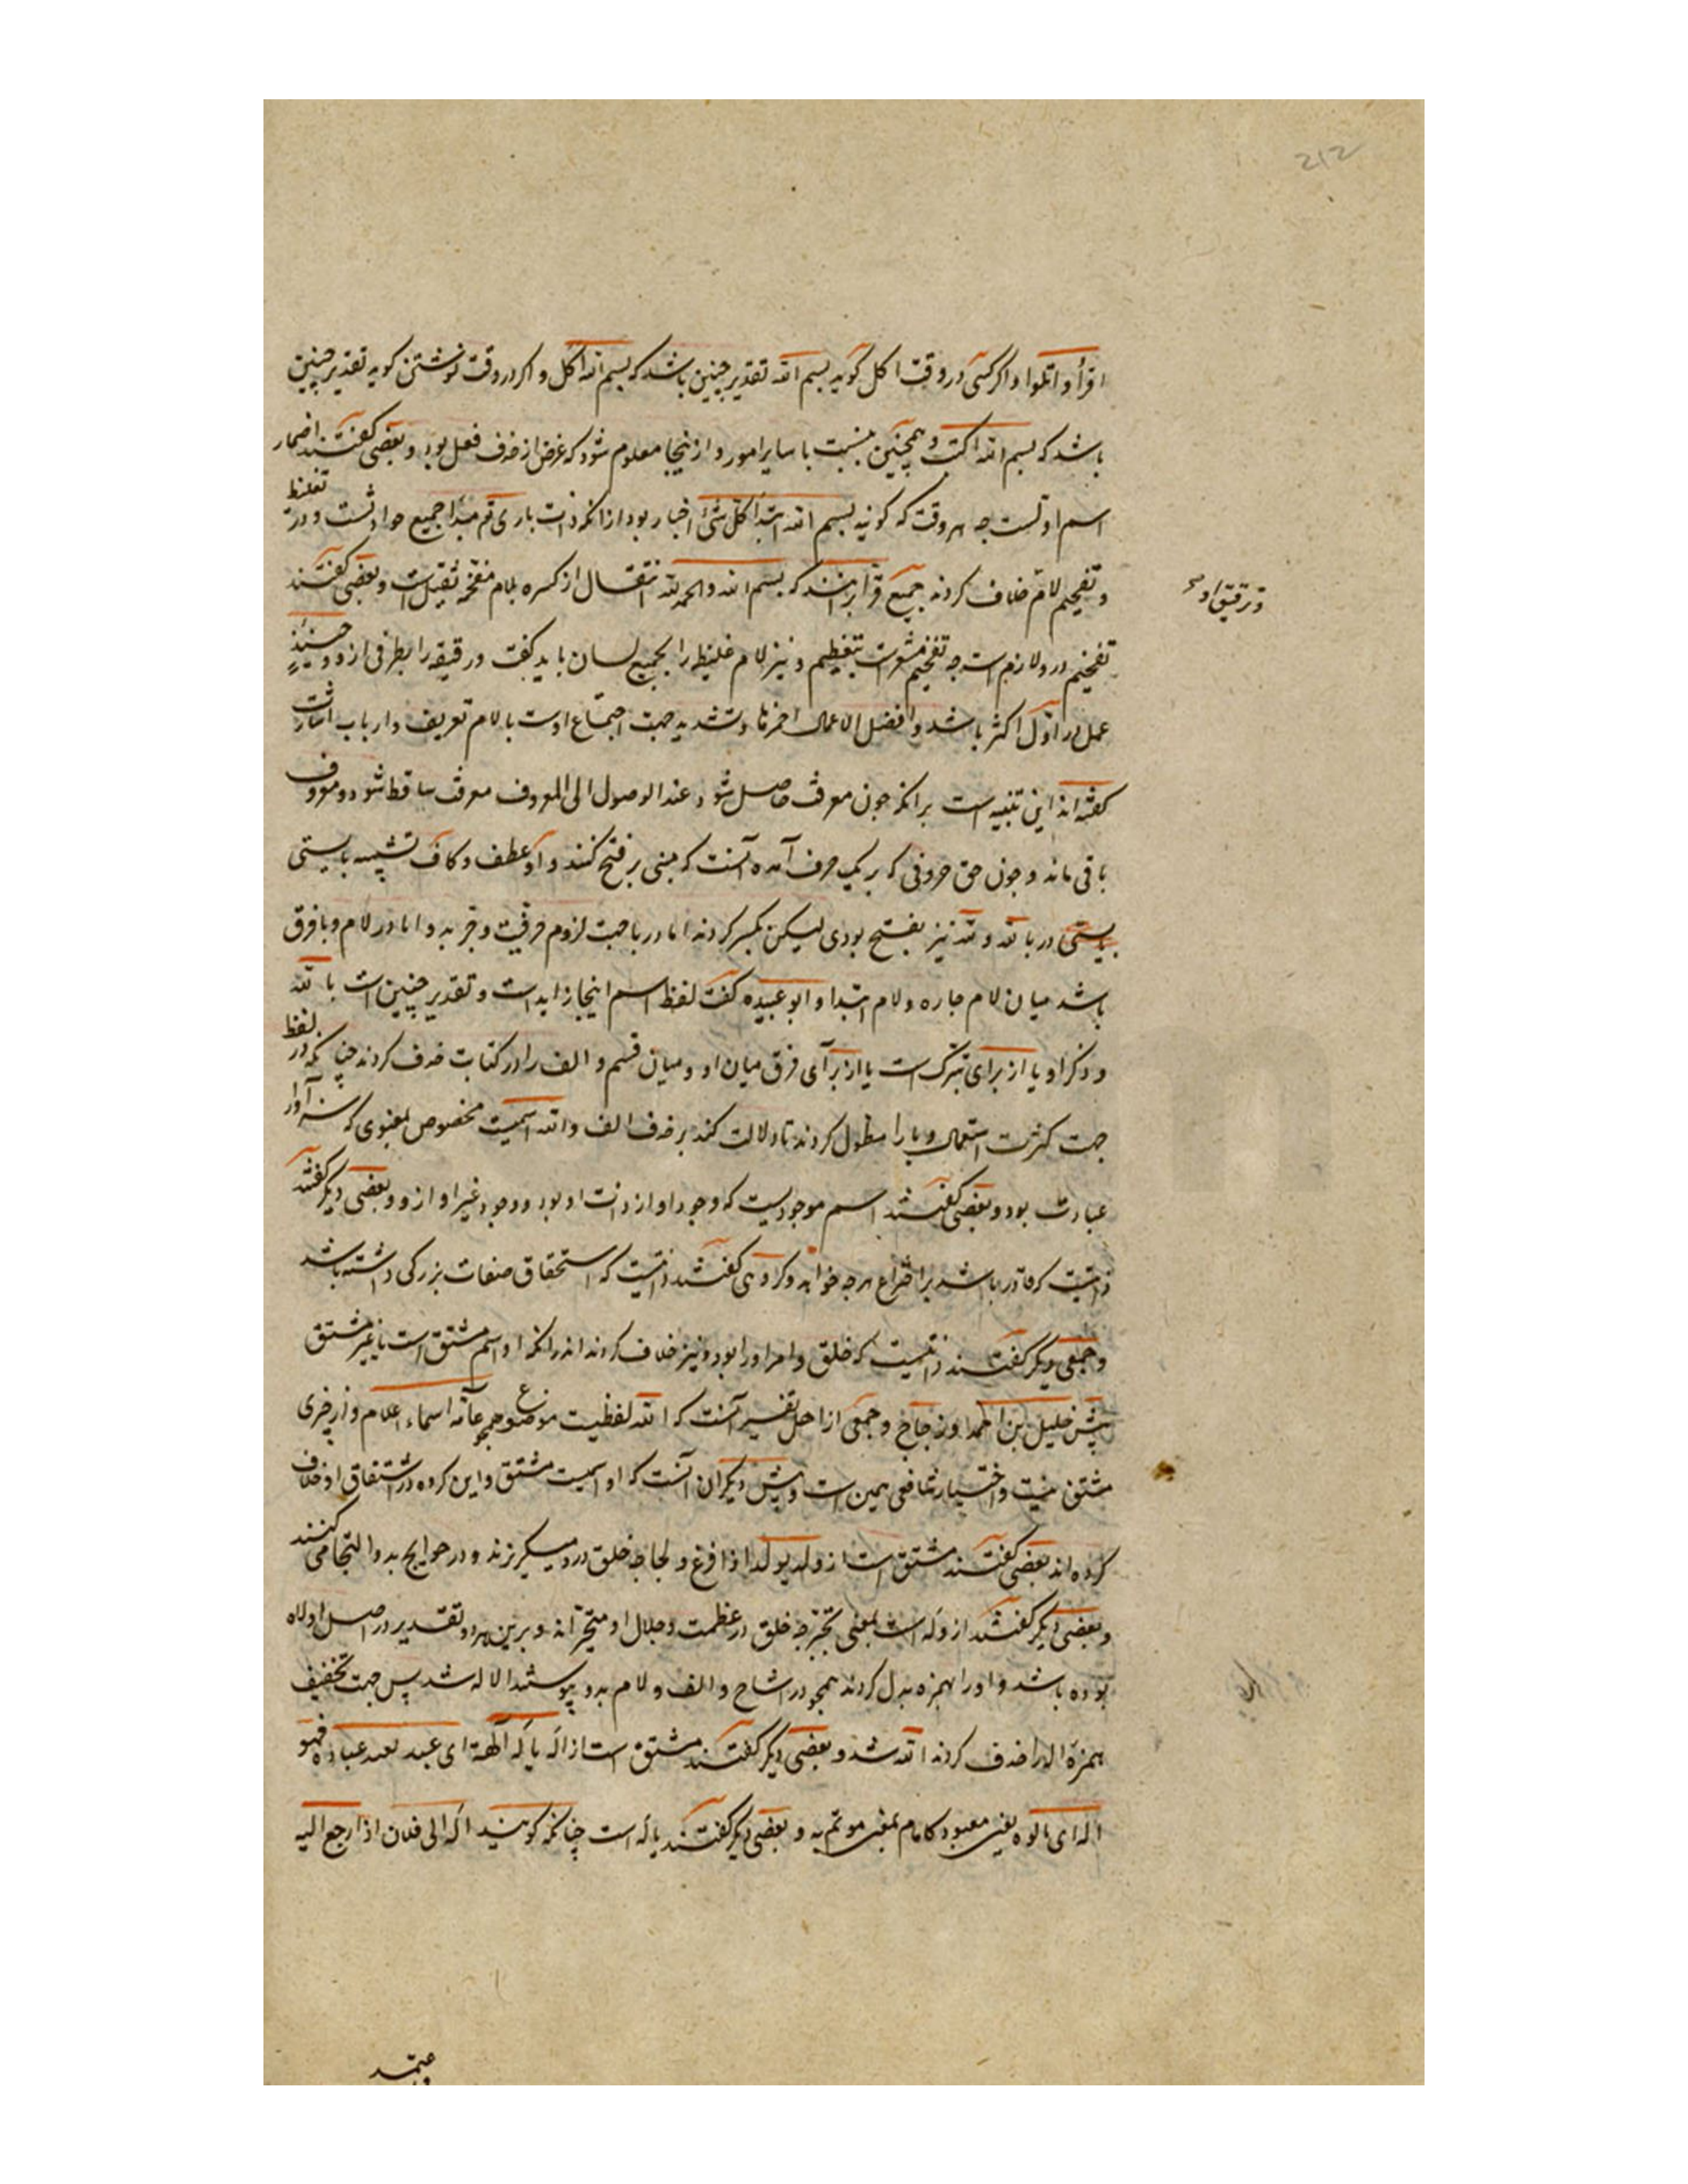 212
اقرأ و اتلوا و اکر کسی در وقت اکل کوید بسم الله تقدیر چنین باشد که بسم الله اکل و اکر در وقت نوشتن کوید تقدیر چنین
باشد که بسم الله اکتب و همچنین بنسبت با سایر امور و از ینجا معلوم شود که غرض از حذف فعل بود و بعضی کفتند اضمار
اسم اولست چه هر وقت که کوئید بسم الله ابتدأ کل شئ اخبار بود از انکه ذات باری تم مبدأ جمیع حوادثست و در تغلیظ
و تفخیم لام خلاف کردند جمیع قرا برانند که بسم الله و الحمد لله انتقال از کسره بلام مفخمه ثقیل است و بعضی کفتند
و ترقیق او صح
تفخیم درو لازم است چه تفخیم مشعرست بتعظیم و نیز لام غلیظ را بجمیع لسان باید کفت و رقیقه را بطرفی ازو و حینئذٍ
عمل در اول اکثر باشد و افضل الاعمال احمزها و تشدید جهت اجتماع اوست با لام تعریف و ارباب اشارت
کفته اند این تنبیه است برانکه چون معرف حاصل شود عند الوصول الی المعروف معرف ساقط شود و معروف
باقی ماند و چون حق حروفی که بر یک حرف آمده آنست که مبنی بر فتح کنند و او عطف و کاف تشبیه بایستی
بایستی در بالله و لله نیز بفتح بودی لیکن بکسر کردند اما در با جهت لزوم حرفیت و جر بدو اما در لام و با فرق
باشد میان لام جاره و لام ابتدا و ابو عبیده کفت لفظ اسم اینجا زاید است و تقدیر چنین است بالله
و ذکر او یا از برای تبرک است یا از برآی فرق میان او و میان قسم و الف را در کتابت حذف کردند چنانکه در لفظ
جهت کثرت استعمال و با را مطول کردند تا دلالت کند بر حذف الف و الله اسمیت مخصوص بمعبودی که سزاوار
عبادت بود و بعضی کفتند اسم موجودیست که وجود او از ذات او بود و وجود غیر او ازو و بعضی دیکر کفتند
ذاتیت که قادر باشد بر اختراع هر چه خواهد و کروهی کفتند ذاتیست که استحقاق صفات بزرکی داشته باشد
و جمعی دیکر کفتند ذاتیست که خلق و امر اورا بود و نیز خلاف کردند اند رانکه او اسم مشتق است یا غیر مشتق
پیش خلیل بن احمد و زجاج و جمعی از اهل تفسیر آنست که الله لفظیت موضوع همچو عامه اسماء اعلام و از چیزی
مشتق نیست و اختیار شافعی همین است و پیش دیکران آنست که او اسمیت مشتق و این کروه در اشتقاق او خلاف
کرده اند بعضی کفتند مشتق است از وله یوله اذا فزع و لجا چه خلق درو میکریزند و در حوایج بدو التجا می کنند
و بعضی دیکر کفتند از وله است بمعنی تحیر چه خلق در عظمت و جلال او متحیر اند و برین هر دو تقدیر در اصل ولاه
بوده باشد واو را بهمزه بدل کردند همچو در اشاح و الف و لام بدو پیوستند الاله شد پس جهت تخفیف
همزه اله را حذف کردند الله شد و بعضی دیکر کفتند مشتق است از اله یاله آلهة ای عبد یعبد عبادة فهو
اله ای مالوه یعنی معبود کامام بمعنی موتم به و بعضی دیکر کفتند یاله است چنانکه کویند اله الی فلان اذا رجع الیه